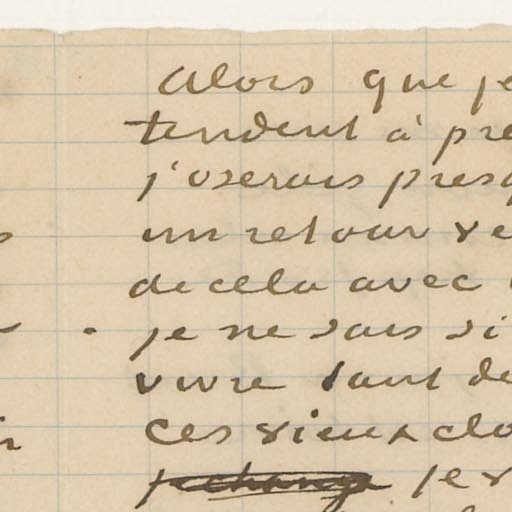 Alors que je
tendent à pre
j'oserais presq
un retour ve
de cela avec
je ne sais si
vivre tant de
Ces vieux clo
je